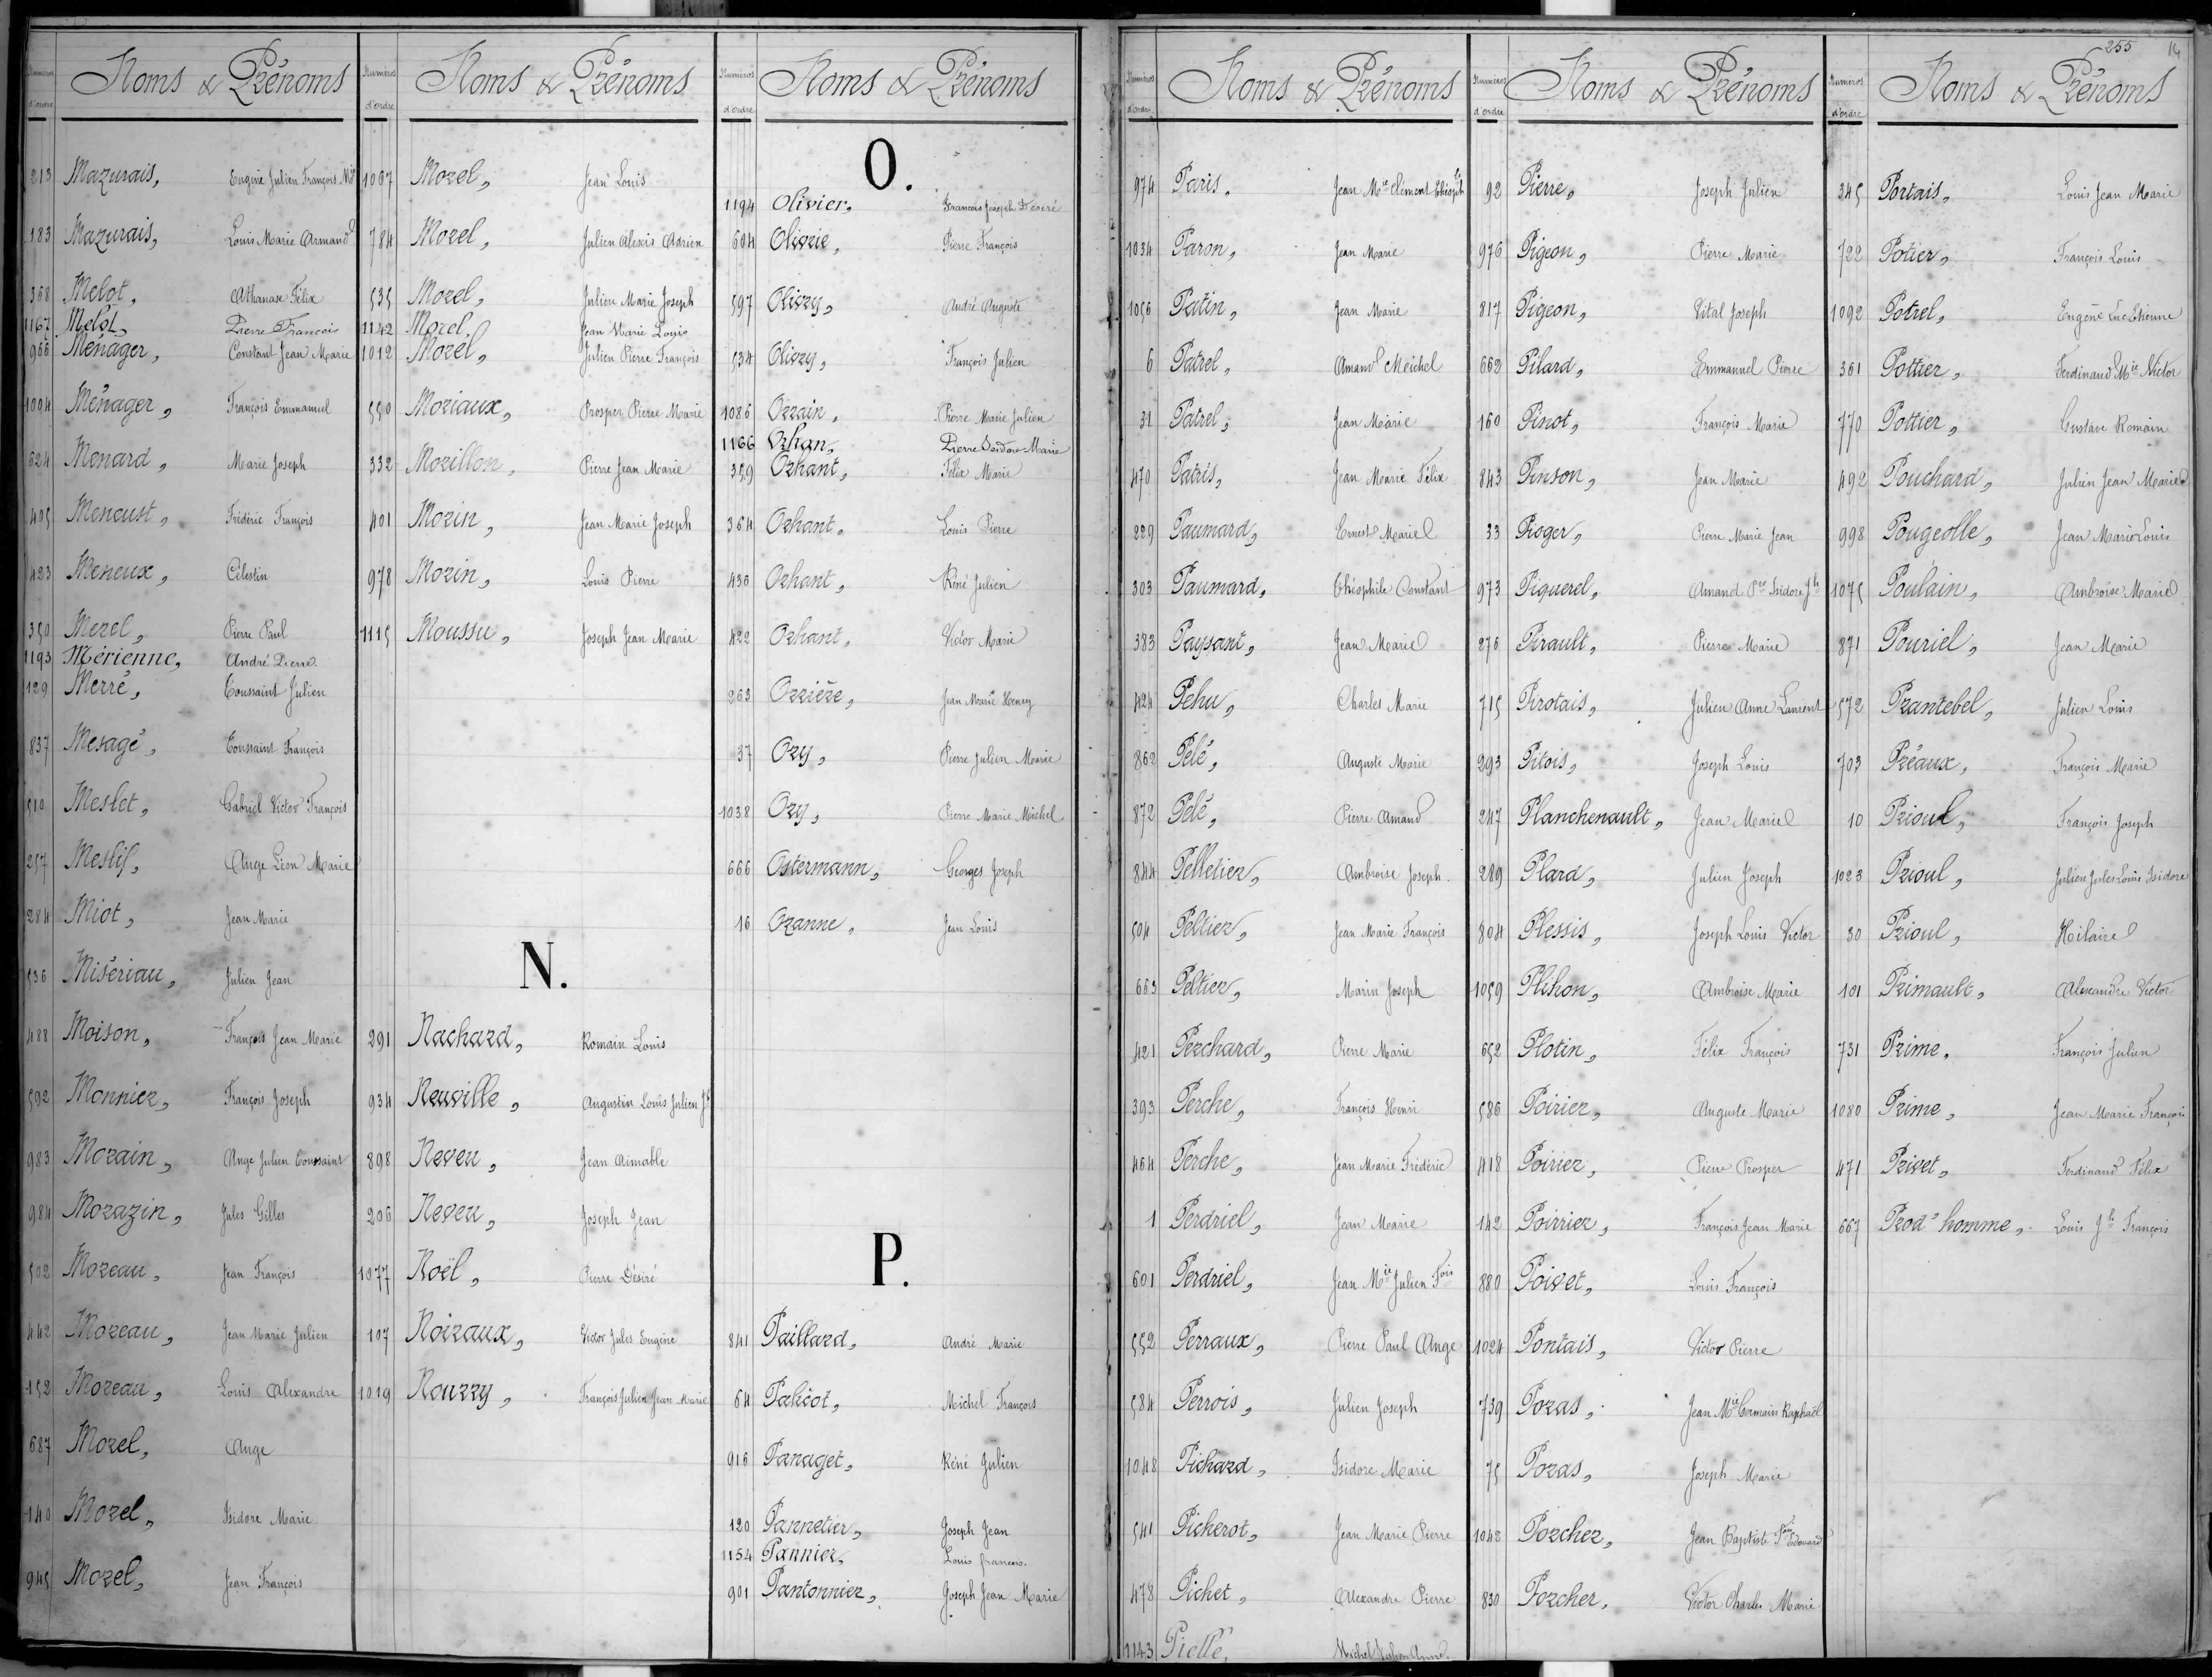 255 14
Numéros d'ordre Noms & Prénoms
213 Mazurais, Eugène Julien François Mie
183 Mazurais, Louis Marie Armand
368 Melot, Athanase Félix
1167 Melot, Pierre François
966 Ménager, Constant Jean Marie
1004 Ménager, François Emmanuel
624 Menard, Marie Joseph
405 Menoust, Frédéric François
423 Meneux, Célestin
350 Merel, Pierre Paul
1193 Mérienne, André Pierre
129 Merré, Toussaint Julien
837 Mesagé, Toussaint François
510 Meslet, Gabriel Victor François
257 Meslif, Ange Léon Marie
284 Miot, Jean Marie
536 Misériau, Julien Jean
488 Moison, François Jean Marie
592 Monnier, François Joseph
983 Morain, Ange Julien Toussaint
984 Morazin, Jules Gilles
502 Moreau, Jean François
442 Moreau, Jean Marie Julien
152 Moreau, Louis Alexandre
687 Morel, Ange
140 Morel, Isidore Marie
945 Morel, Jean François
Numéros d'ordre Noms & Prénoms
1067 Morel, Jean Louis
784 Morel, Julien Alexis Adrien
535 Morel, Julien Marie Joseph
1142 Morel, Jean Marie Louis
1012 Morel, Julien Pierre François
550 Moriaux, Prosper Pierre Marie
332 Morillon, Pierre Jean Marie
401 Morin, Jean Marie Joseph
978 Morin, Louis Pierre
1115 Moussu, Joseph Jean Marie
N.
291 Nachard, Romain Louis
934 Neuville, Augustin Louis Julien Jh
898 Neveu, Jean Aimable
206 Neveu, Joseph Jean
1077 Noël, Pierre Désiré
107 Noiraux, Victor Jules Eugène
1019 Nourry, François Julien Jean Marie
Numéros d'ordre Noms & Prénoms
O.
1194 Olivier, François Joseph Désiré
604 Olivrie, Pierre François
597 Olivry, André Auguste
534 Olivry, François Julien
1086 Orrain, Pierre Marie Julien
1166 Orhan, Pierre Isidore Marie
359 Orhant, Félix Marie
364 Orhant, Louis Pierre
436 Orhant, Réné Julien
422 Orhant, Victor Marie
263 Orrière, Jean Marie Henry
37 Ory, Pierre Julien Marie
1038 Ory, Pierre Marie Michel
666 Ostermann, Georges Joseph
16 Ozanne, Jean Louis
P.
841 Paillard, André Marie
64 Palicot, Michel François
916 Panaget, Réné Julien
120 Pannetier, Joseph Jean
1154 Pannier, Louis François
901 Pantonnier, Joseph Jean Marie
Numéros d'ordre Noms & Prénoms
974 Paris, Jean Mie Clément
1034 Paron, Jean Marie
1056 Patin, Jean Marie
6 Patrel, Amand Meichel
31 Patrel, Jean Marie
470 Patris, Jean Marie Félix
229 Paumard, Ernest Marie
303 Paumard, Théophile Constant
383 Paysant, Jean Marie
424 Pehu, Charles Marie
862 Pelé, Auguste Marie
872 Pelé, Pierre Amand
844 Pelletier, Ambroise Joseph
504 Peltier, Jean Marie François
663 Peltier, Marin Joseph
421 Perchard, Pierre Marie
393 Perche, François Henri
464 Perche, Jean Marie Frédéric
1 Perdriel, Jean Marie
601 Perdriel, Jean Mie Julien Fois
552 Perraux, Pierre Paul Ange
584 Perrois, Julien Joseph
1048 Pichard, Isidore Marie
541 Picherot, Jean Marie Pierre
478 Pichet, Alexandre Pierre
1143 Piellé, Michel Julien Anne
Numéros d'ordre Noms & Prénoms
92 Pierre, Joseph Julien
976 Pigeon, Pierre Marie
817 Pigeon, Vital Joseph
662 Pilard, Emmanuel Pierre
160 Pinot, François Marie
843 Pinson, Jean Marie
33 Pioger, Pierre Marie Jean
973 Piquerel, Amand Pre Isidore Jh
276 Pirault, Pierre Marie
715 Pirotais, Julien Anne Laurent
293 Pitois, Joseph Louis
247 Planchenault, Jean Marie
289 Plard, Julien Joseph
804 Plessis, Joseph Louis Victor
1059 Plihon, Ambroise Marie
652 Plotin, Félix François
586 Poirier, Auguste Marie
418 Poirier, Pierre Prosper
142 Poirrier, François Jean Marie
880 Poivet, Louis François
1024 Pontais, Victor Pierre
739 Poras, Jean Mie Germain Raphaël
75 Poras, Joseph Marie
1042 Porcher, Jean Baptiste Fois Edouard
830 Porcher, Victor Charles Marie
Numéros d'ordre Noms & Prénoms
345 Portais, Louis Jean Marie
722 Potier, François Louis
1092 Potrel, Eugène Luc Etienne
361 Pottier, Ferdinand Mie Victor
770 Pottier, Gustave Romain
492 Pouchard, Julien Jean Marie
998 Pougeolle, Jean Marie Louis
1075 Poulain, Ambroise Marie
871 Pouriel, Jean Marie
572 Prantebel, Julien Louis
703 Préaux, François Marie
10 Prioul, François Joseph
1023 Prioul, Julien Jules Louis Isidore
30 Prioul, Hilaire
101 Primault, Alexandre Victor
731 Prime, François Julien
1080 Prime, Jean Marie François
471 Privet, Ferdinand Félix
667 Prod'homme, Louis Jh François